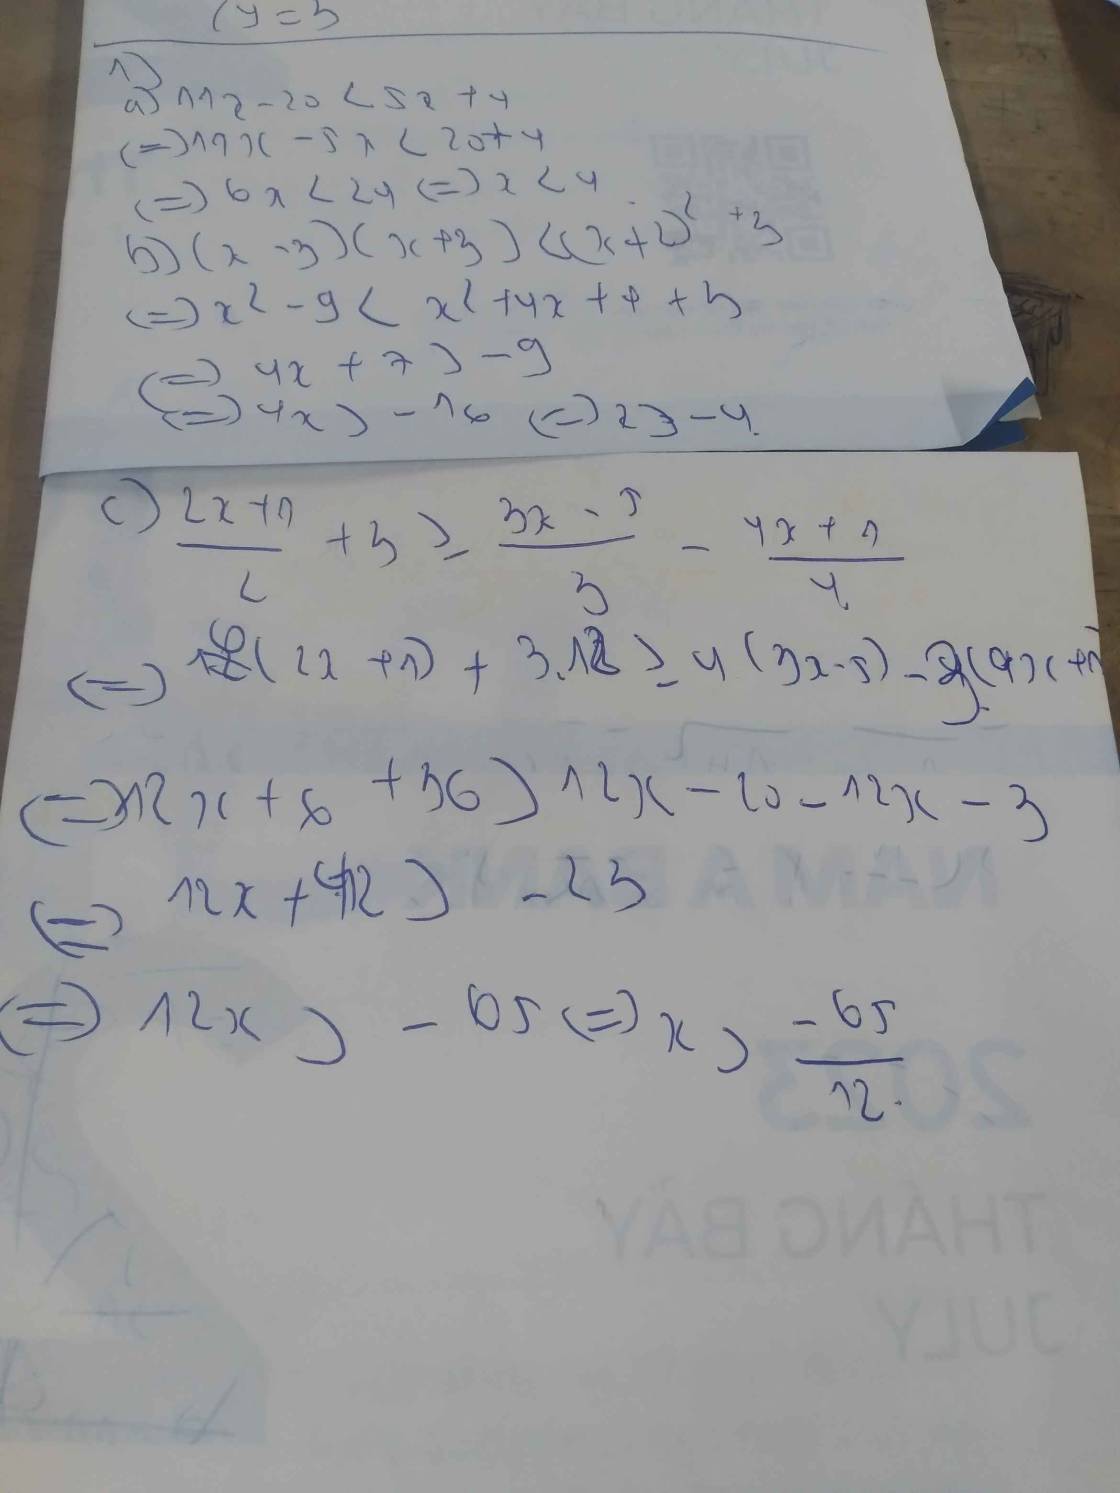 (y = 3
1)
a) 11x - 20 < 5x + 4
(=) 11x - 5x < 20 + 4
(=) 6x < 24 (=) x < 4
b) (x - 3)(x + 3) < (x + 2)² + 3
(=) x² - 9 < x² + 4x + 4 + 3
(=) 4x + 7 > -9
(=) 4x > -16 (=) x > -4.
c) (2x + 1)/2 + 3 ≥ (3x - 5)/3 - (4x + 1)/4
(=) 6(2x + 1) + 3.12 ≥ 4(3x - 5) - 3(4x + 1
(=) 12x + 6 + 36 > 12x - 20 - 12x - 3
(=) 12x + 42 > -23
(=) 12x > -65 (=) x > -65/12.
NAM A BANK
2023
THÁNG BẢY
JULY